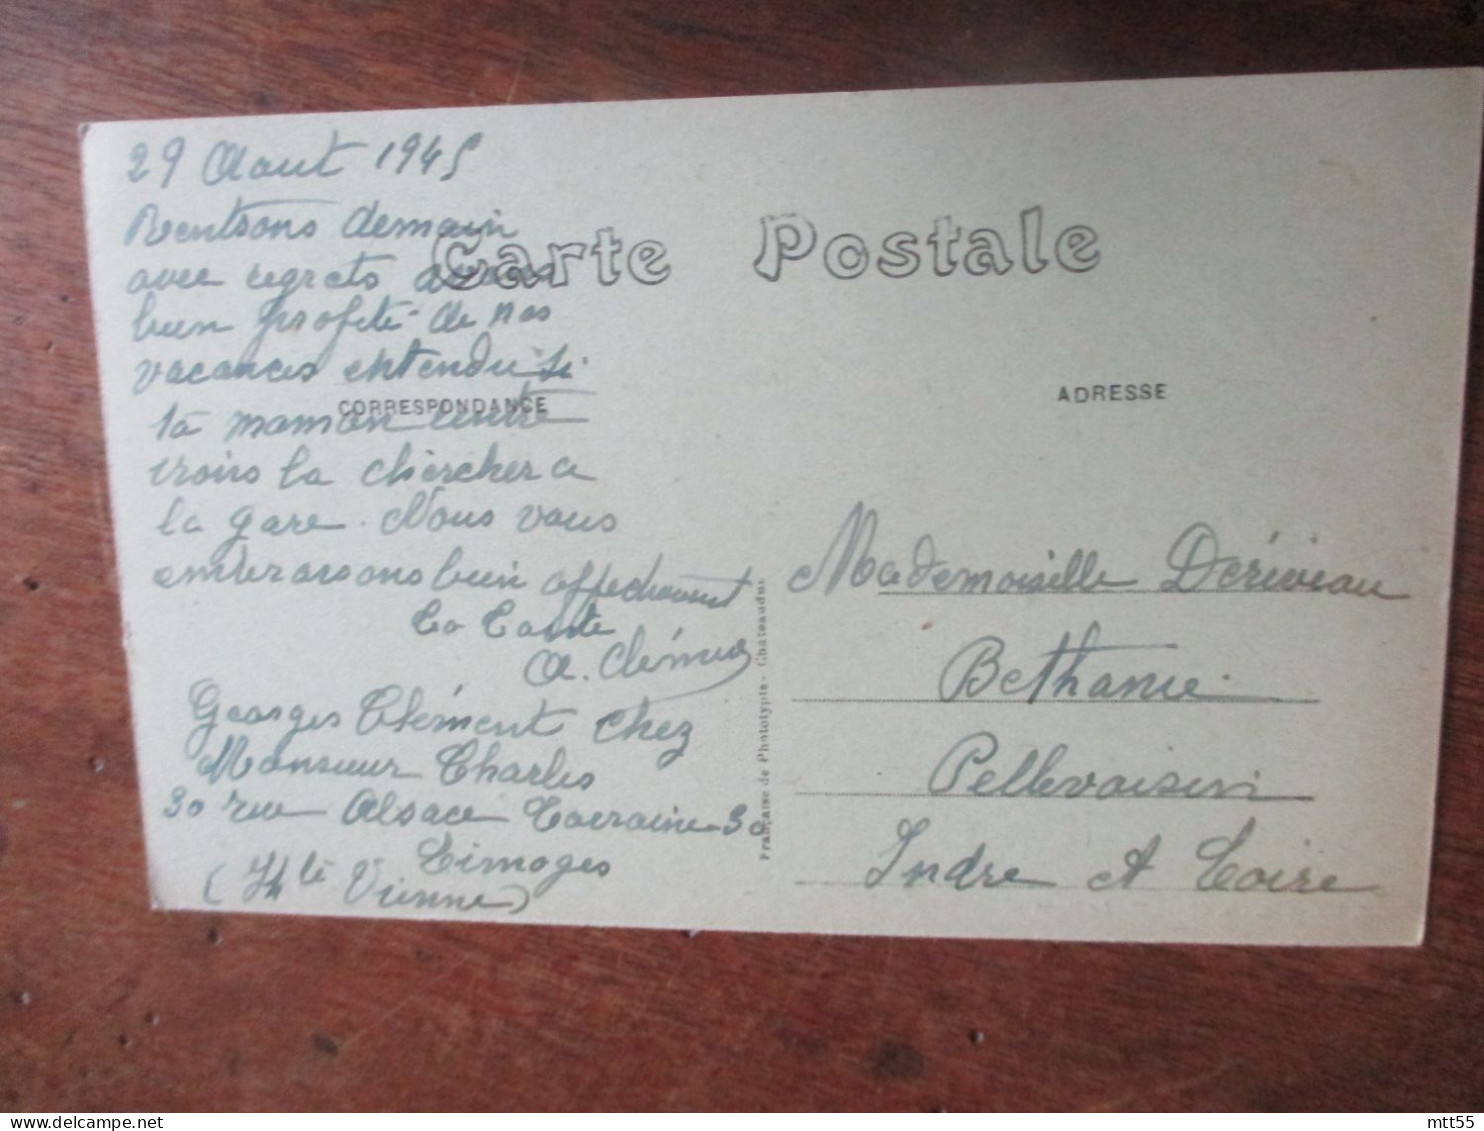 29 Aout 1945
Rentrons demain
avec regrets avons
bien profité de nos
vacances entendu si
ta maman rentre
irons la chercher a
la gare. Nous vous
embrassons bien affectueusement
La Tante
A. Clément
Georges Clément chez
Monsieur Charles
30 rue Alsace Lorraine 30
Limoges
(Hte Vienne)
Carte Postale
CORRESPONDANCE
ADRESSE
Française de Phototypie - Châteaudun
Mademoiselle Dériveau
Bethanie
Pellevoisin
Indre et Loire
mtt55